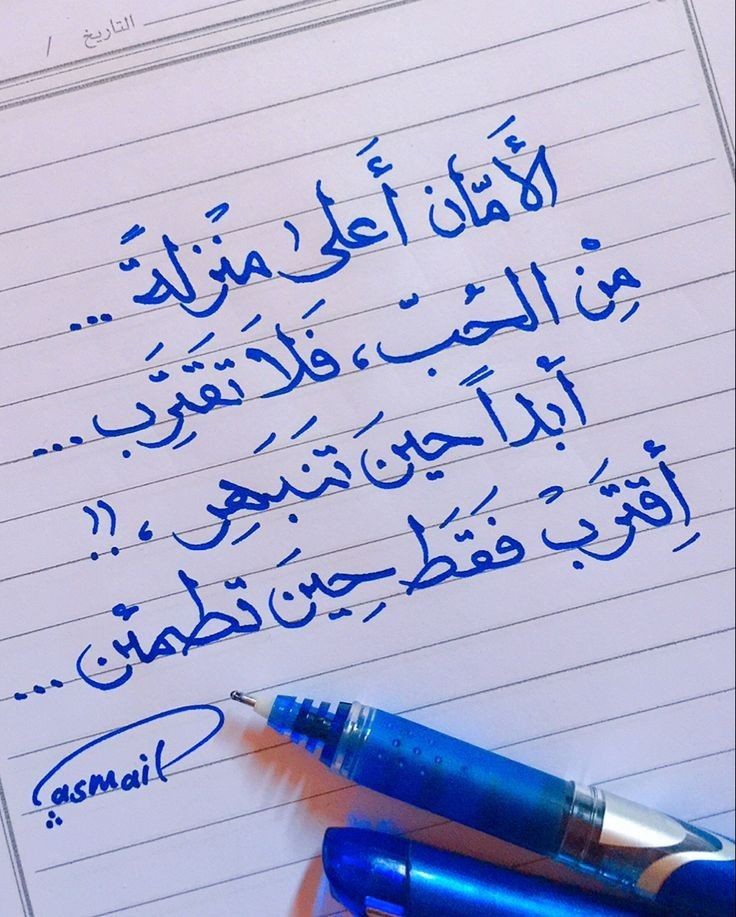 التاريخ /
الأمّان أَعلىٰ منُزلةً ...
مِنْ الحُبّ، فَلَا تَقَترَِّب ...
أبداً حينَ تَنبَهَِر، !!
أِقترَبْ فَقَطَ حِينَ تطمئْن ...
asmail